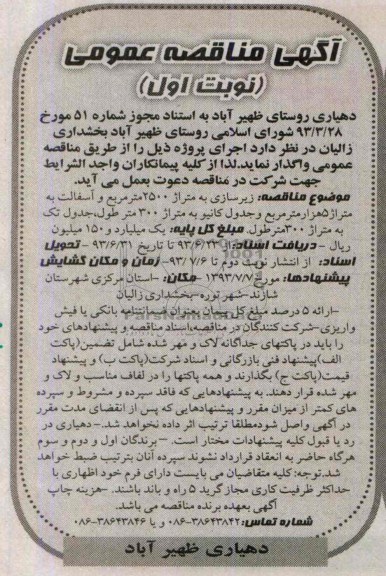 آگهی مناقصه عمومی
(نوبت اول)
دهیاری روستای ظهیر آباد به استناد مجوز شماره ۵۱ مورخ
۹۳/۳/۲۸ شورای اسلامی روستای ظهیر آباد بخشداری
زالیان در نظر دارد اجرای پروژه ذیل را از طریق مناقصه
عمومی واگذار نماید.لذا از کلیه پیمانکاران واجد الشرایط
جهت شرکت در مناقصه دعوت بعمل می آید.
موضوع مناقصه: زیرسازی به متراژ ۲۵۰۰مترمربع و آسفالت به
متراژ۵هزارمترمربع وجدول کانیو به متراژ ۳۰۰ متر طول،جدول تک
به متراژ ۳۰۰مترطول. مبلغ کل پایه: یک میلیارد و ۱۵۰ میلیون
ریال – دریافت اسناد: ۹۳/۶/۲۳ تا تاریخ ۹۳/۶/۳۱ – تحویل
اسناد: از انتشار نوبت دوم تا ۹۳/۷/۶– زمان و مکان گشایش
پیشنهادها: مورخ ۱۳۹۳/۷/۷ –مکان: –استان مرکزی شهرستان
شازند–شهر توره–بخشداری زالیان
–ارائه ۵ درصد مبلغ کل پیمان بعنوان ضمانتنامه بانکی یا فیش
واریزی–شرکت کنندگان در مناقصه،اسناد مناقصه و پیشنهادهای خود
را باید در پاکتهای جداگانه لاک و مهر شده شامل تضمین(پاکت
الف)پیشنهاد فنی بازرگانی و اسناد شرکت(پاکت ب) و پیشنهاد
قیمت(پاکت ج) بگذارند و همه پاکتها را در لفاف مناسب و لاک و
مهر شده قرار دهند. به پیشنهادهایی که فاقد سپرده و مشروط و سپرده
های کمتر از میزان مقرر و پیشنهادهایی که پس از انقضای مدت مقرر
در آگهی واصل شودمطلقا ترتیب اثر داده نخواهد شد.– دهیاری در
رد یا قبول کلیه پیشنهادات مختار است. – برندگان اول و دوم و سوم
هرگاه حاضر به انعقاد قرارداد نشوند سپرده آنان بترتیب ضبط خواهد
شد.توجه: کلیه متقاضیان می بایست دارای فرم خود اظهاری با
حداکثر ظرفیت کاری مجاز گرید ۵ راه و باند باشند. –هزینه چاپ
آگهی بعهده برنده مناقصه می باشد.
شماره تماس: ۳۸۶۴۳۸۴۲–۰۸۶ و یا ۳۸۶۴۳۸۴۶–۰۸۶
دهیاری ظهیر آباد